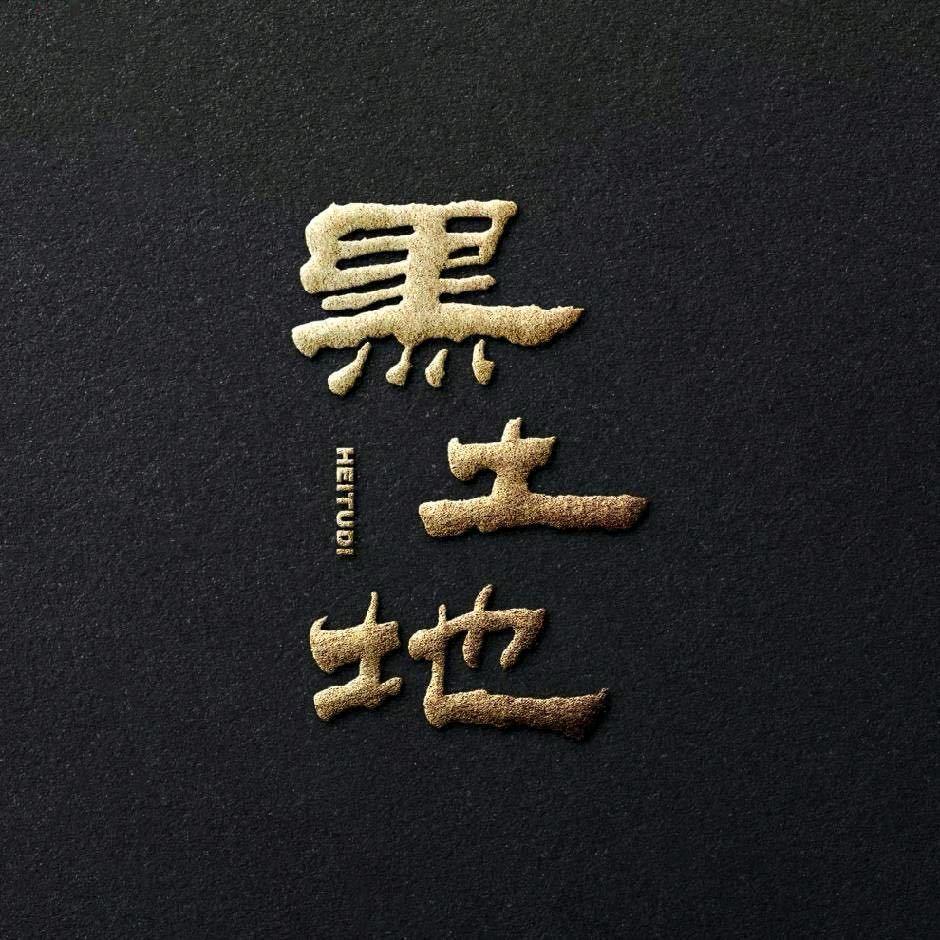 黑土地
HEITUDI